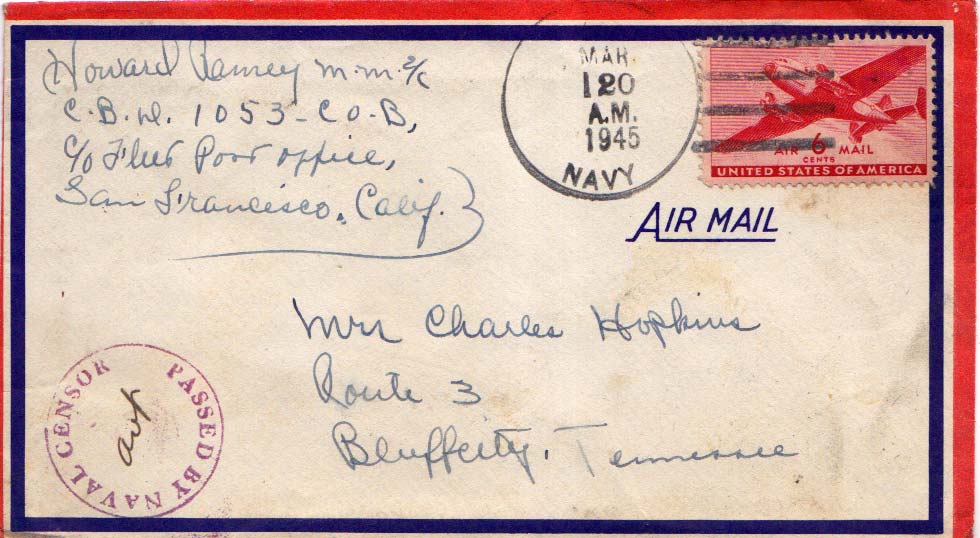 Howard Ramey m.m. 2/c
C.B.D. 1053 - CO-B,
c/o Fleet Post office,
San Francisco, Calif.
MAR
120
A.M.
1945
NAVY
AIR 6 MAIL
CENTS
UNITED STATES OF AMERICA
AIR MAIL
Mrs Charles Hopkins
Route 3
Bluffcity, Tennessee
PASSED BY NAVAL CENSOR